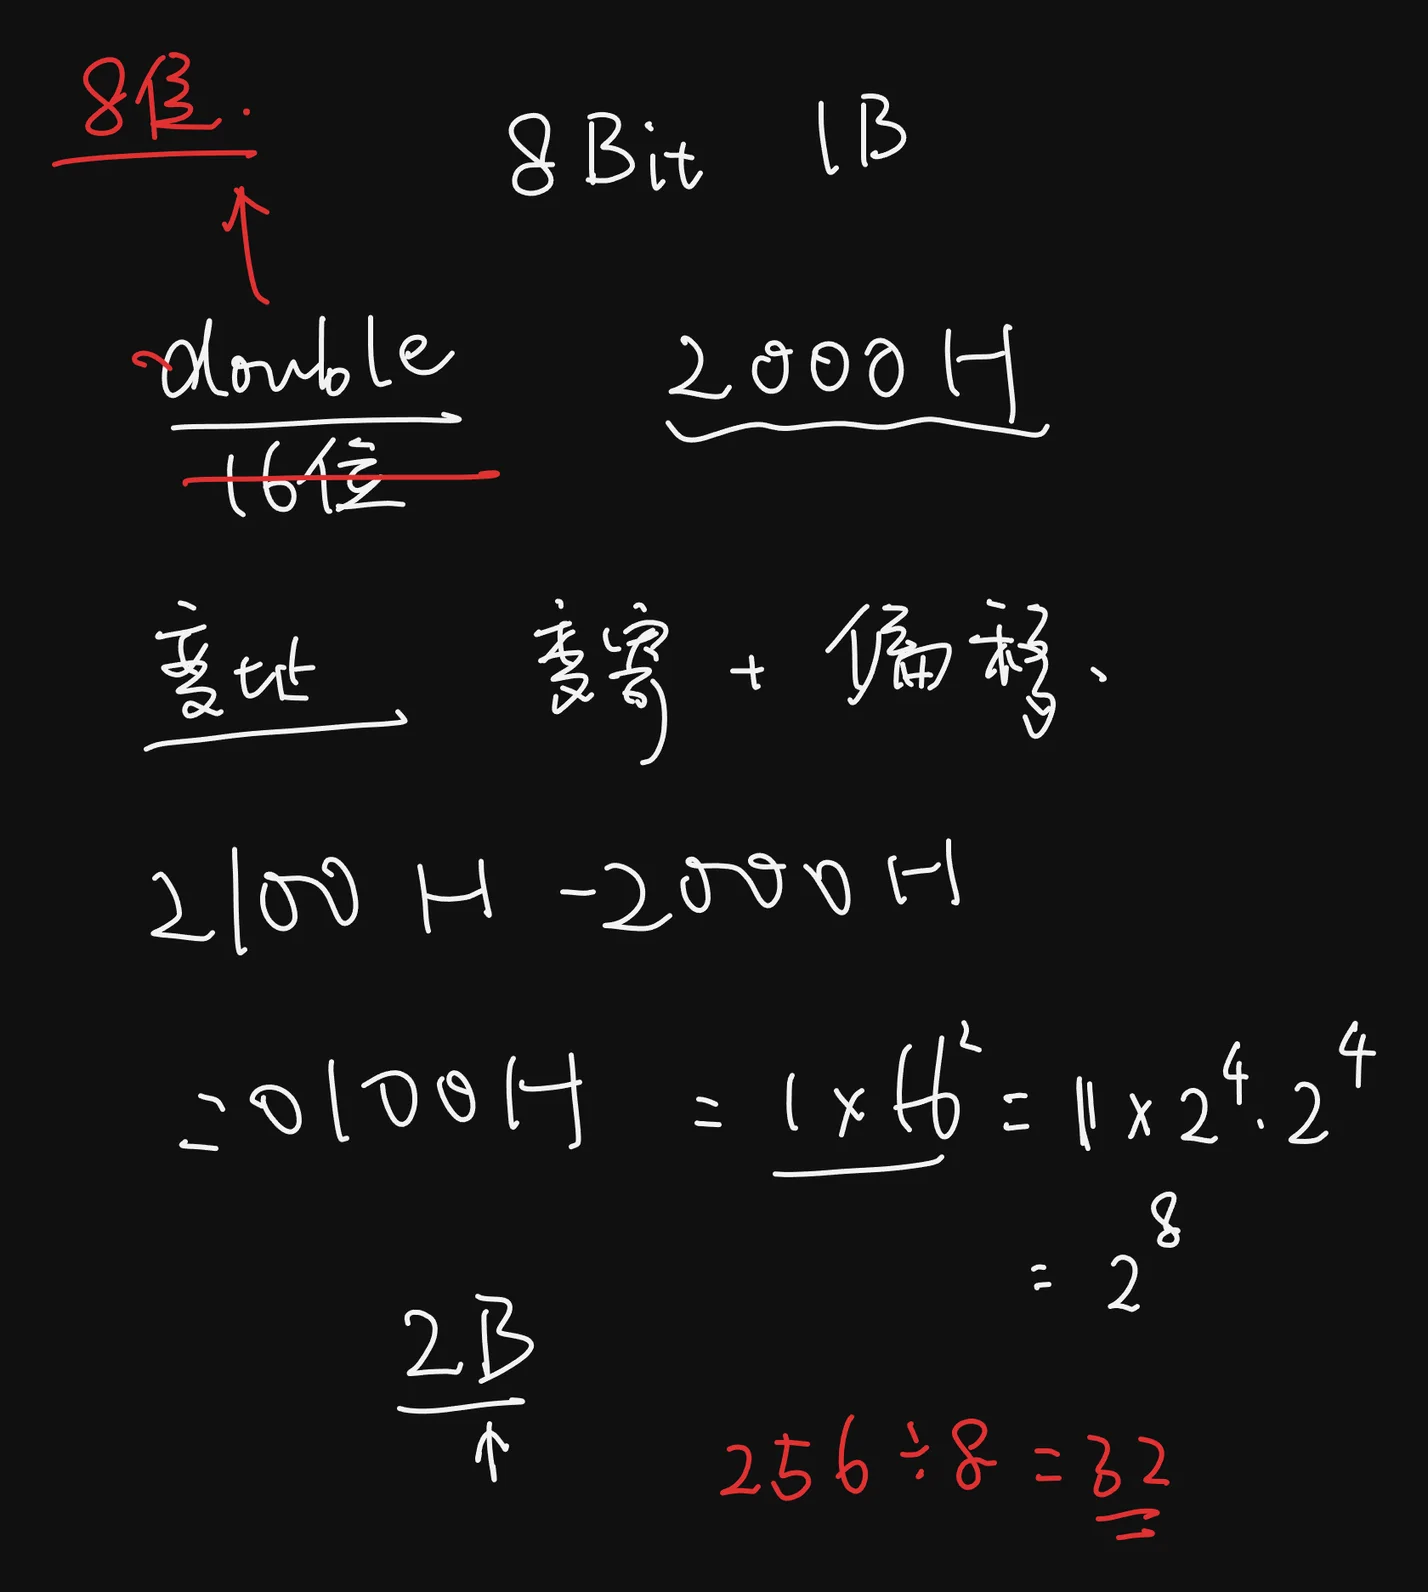 8位.
8Bit 1B
double 2000H
16位
变址 变寄 + 偏移、
2100H - 2000H
= 0100H = 1 × 16² = 1 × 2⁴ · 2⁴
= 2⁸
2B
256 ÷ 8 = 32